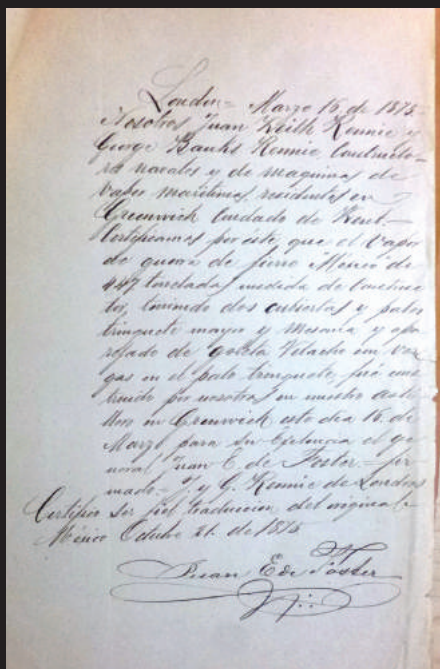 London = Marzo 16 de 1875=
Nosotros Juan Keith Rennie y
George Banks Rennie Constructo-
res navales y de maquinas de
vapor maritimas, residentes en
Greenwich Condado de Kent=
Certificamos por éste que el Vapor
de guerra de fierro México de
447 toneladas medida de construc
teniendo dos cubiertas y palos
trinquete mayor y mesana y apa
rejado de goleta Velacho con ver
gas en el palo trinquete, fué cons
truido por nosotros en nuestro
en Greenwich este dia 16 de
Marzo para Su Exelencia el ge
neral Juan E. de Foster = fir
mado = J. y G. Rennie de Londres
Certifico ser fiel traduccion del original
México Octubre 21. de 1875
Juan E de Foster